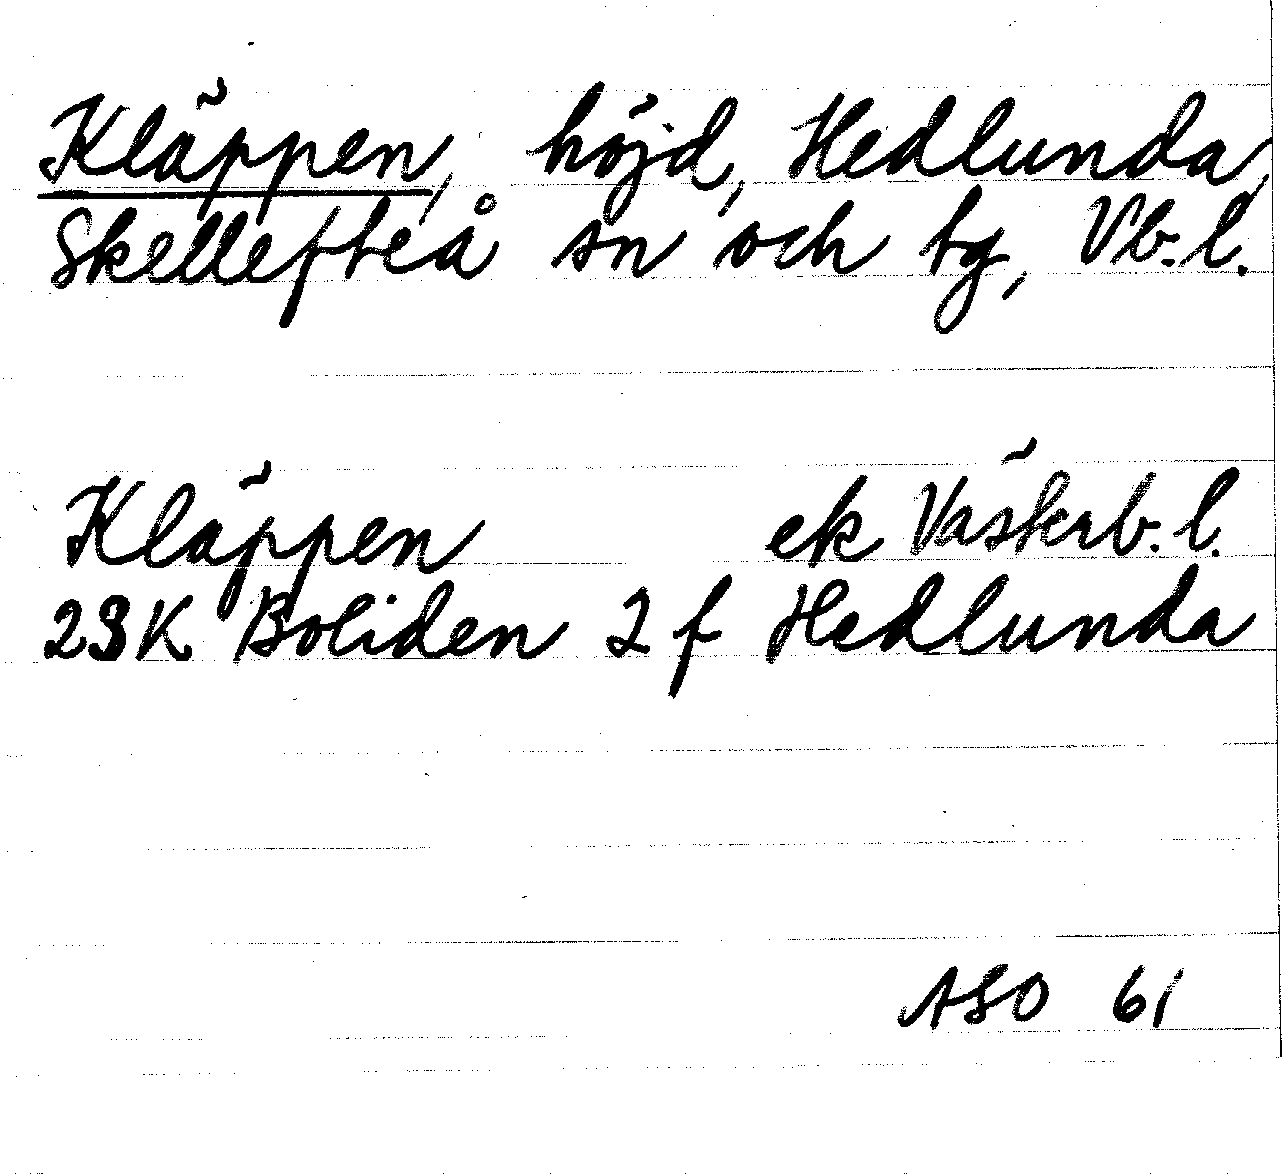 Kläppen, höjd, Hedlunda,
Skellefteå sn och tg, Vb. l.
Kläppen ek Västerb. l.
23K Boliden 2 f Hedlunda
ASO 61